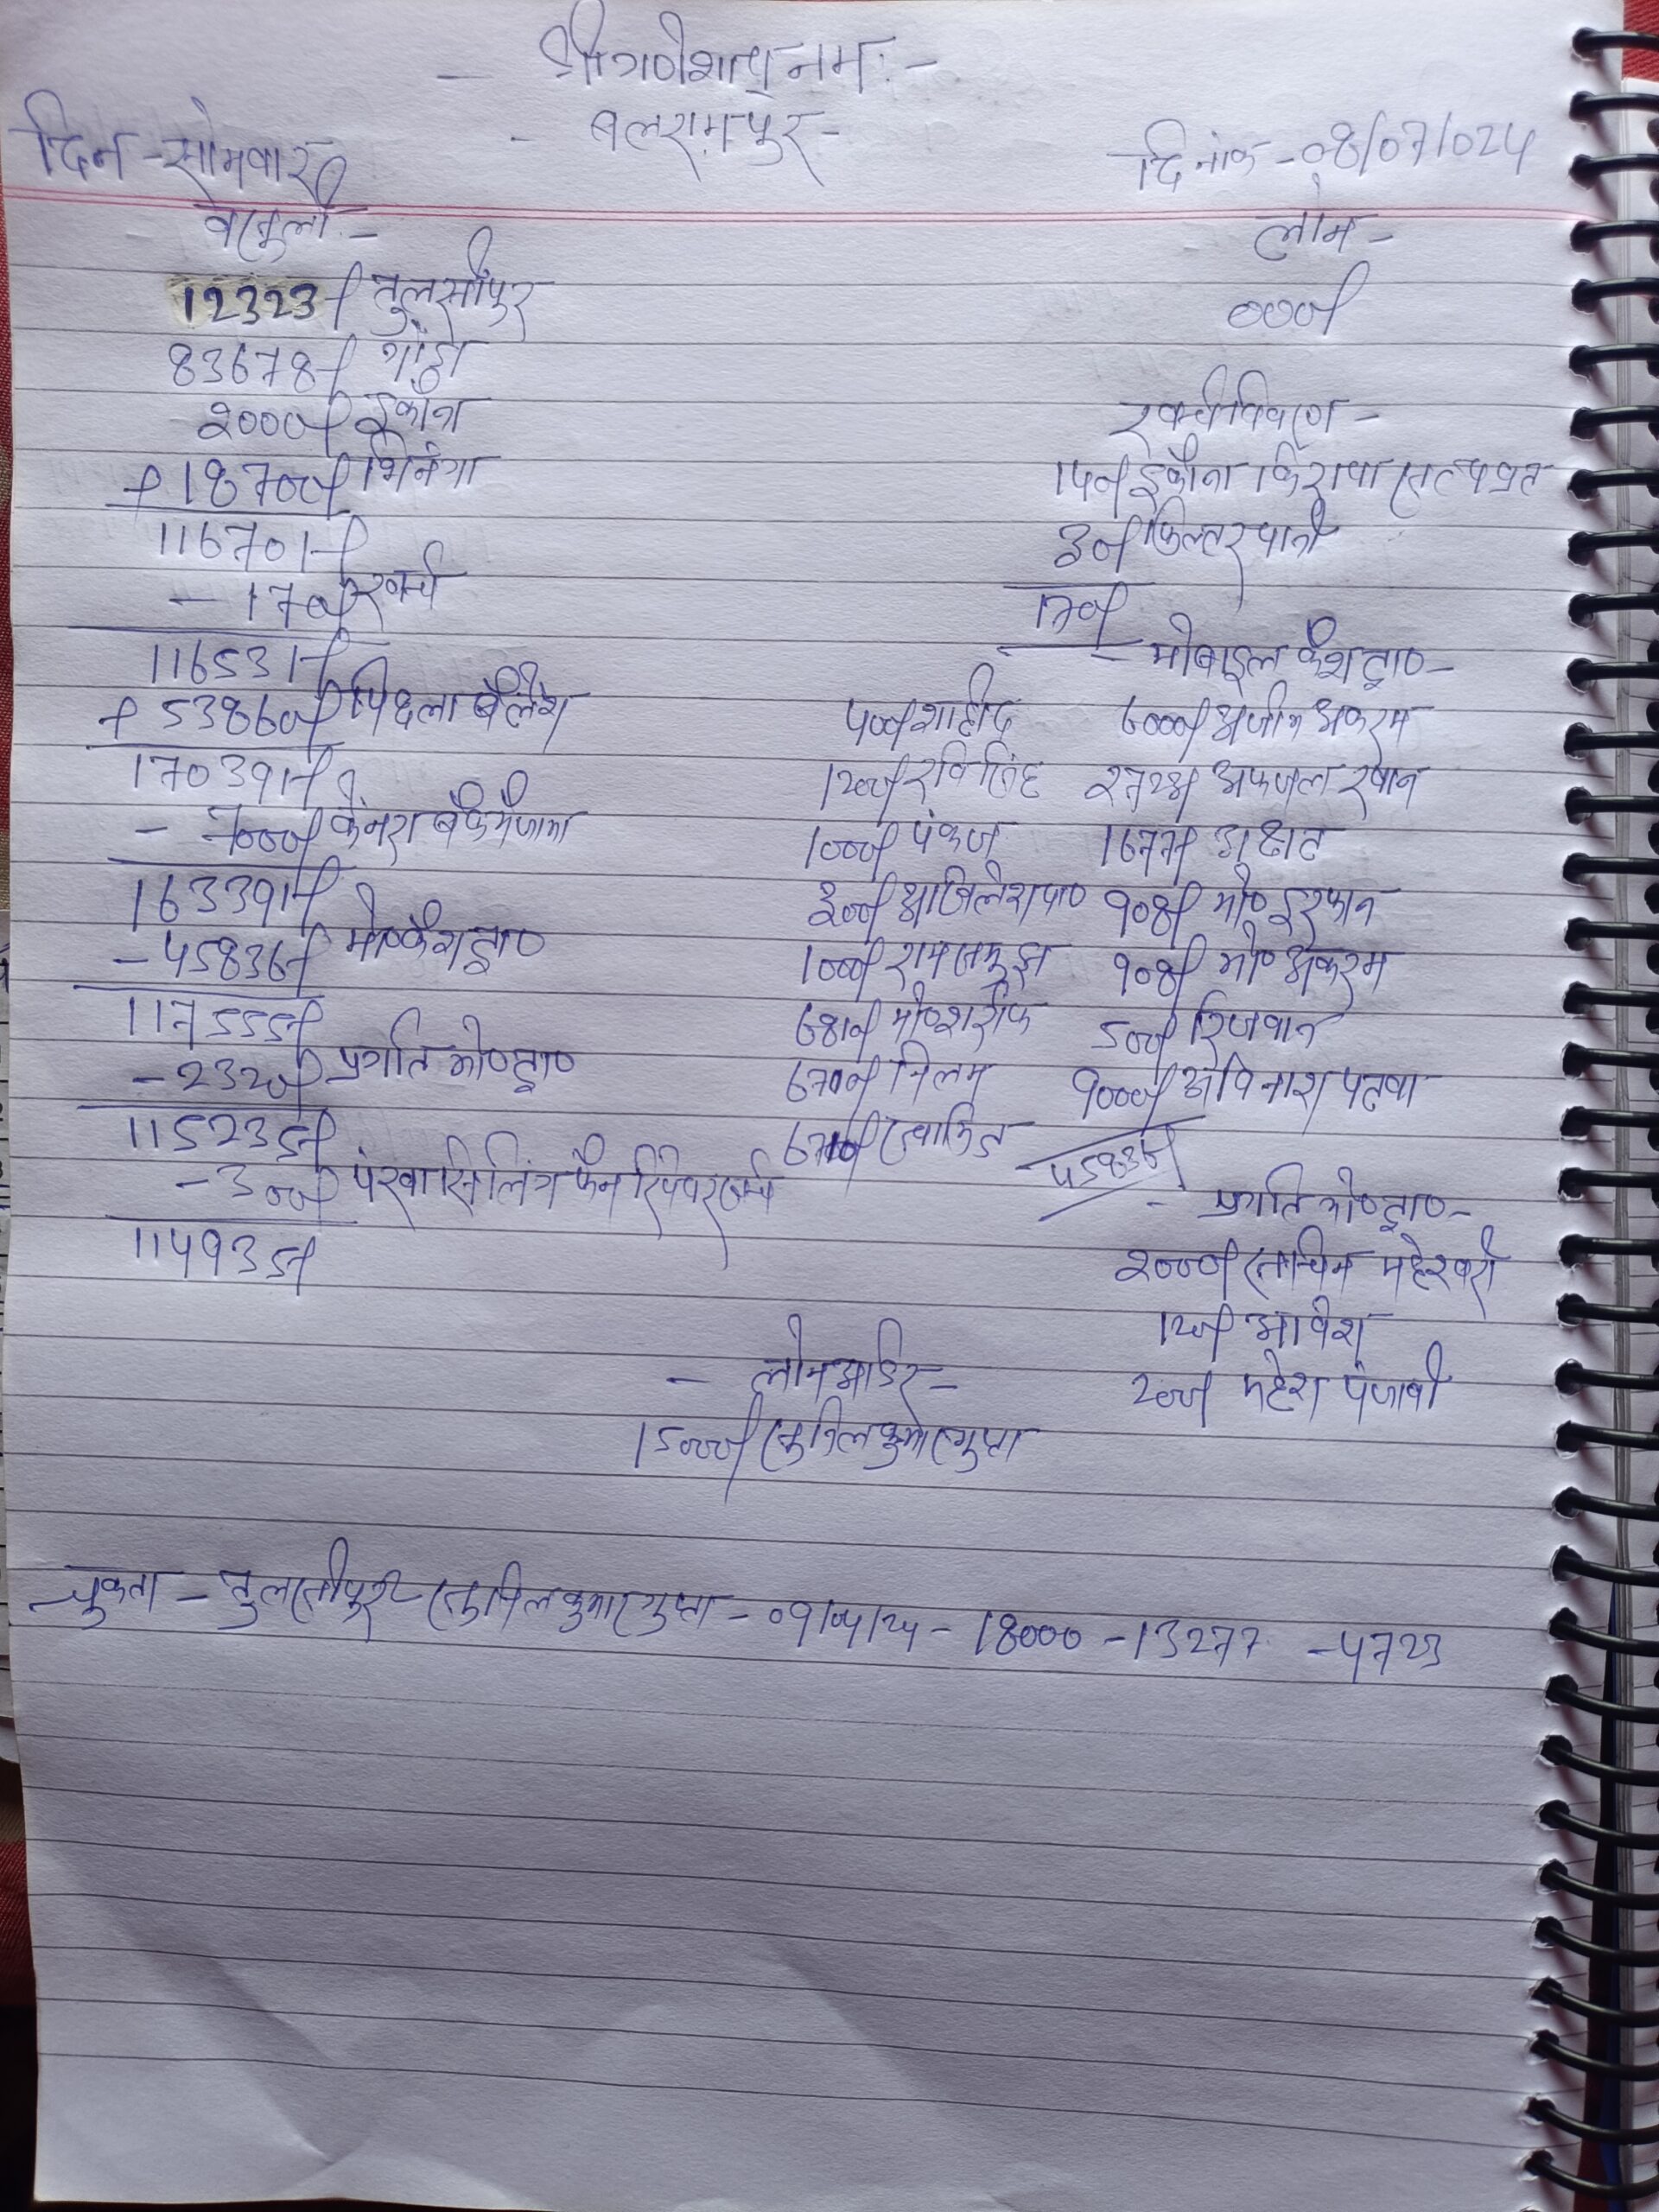 - श्री गणेशाय नमः -
- बलरामपुर -
दिन - सोमवार
दिनांक - 08/07/024
वसूली -
लोन -
12323/- तुलसीपुर
000/-
83678/- गोंडा
2000/- इकौना
+ 18700/- भिनगा
116701/-
- 170/- खर्च
116531/-
+ 53860/- पिछला बैलेंश
170391/-
- 7000/- केनरा बैंक मैजामा
163391/-
- 45836/- मो० कैश ट्रा०
117555/-
- 2320/- प्रगति मो० ट्रा०
115235/-
- 300/- पंखा सिलिंग फैन रिपेयर खर्च
114935/-
खर्च विवरण -
140/- इकौना किराया सत्यव्रत
30/- फिल्टर पानी
170/-
- मोबाइल कैश ट्रा० -
500/- शाहीद
6000/- अजीम अकरम
1200/- रवि सिंह
2728/- अफजल खान
1000/- पंकज
1677/- अक्षत
300/- अखिलेश पा०
908/- मो० इरफान
1000/- रामसमुझ
908/- मो० अकरम
6810/- मो० शरीफ
500/- रिजवान
6700/- निलम
9000/- अविनाश पटवा
6710/-
45836/-
- प्रगति मो० ट्रा० -
2000/- सचिन महेश्वरी
120/- आवेश
200/- महेश पंजाबी
- लोन आडर -
15000/- सुनिल कुमार गुप्ता
चुकता - तुलसीपुर सुनिल कुमार गुप्ता - 18000 - 13277 - 4723